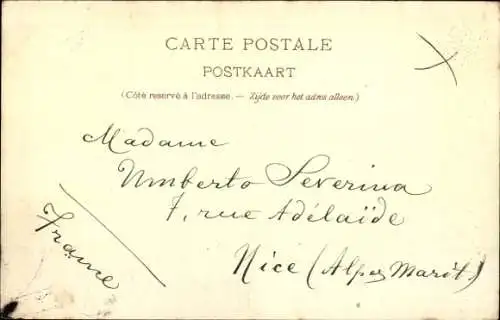 CARTE POSTALE
POSTKAART
(Côté reservé à l'adresse. — Zijde voor het adres alleen.)
Madame
Umberto Severina
7, rue Adélaïde
Nice (Alpes Marit)
France